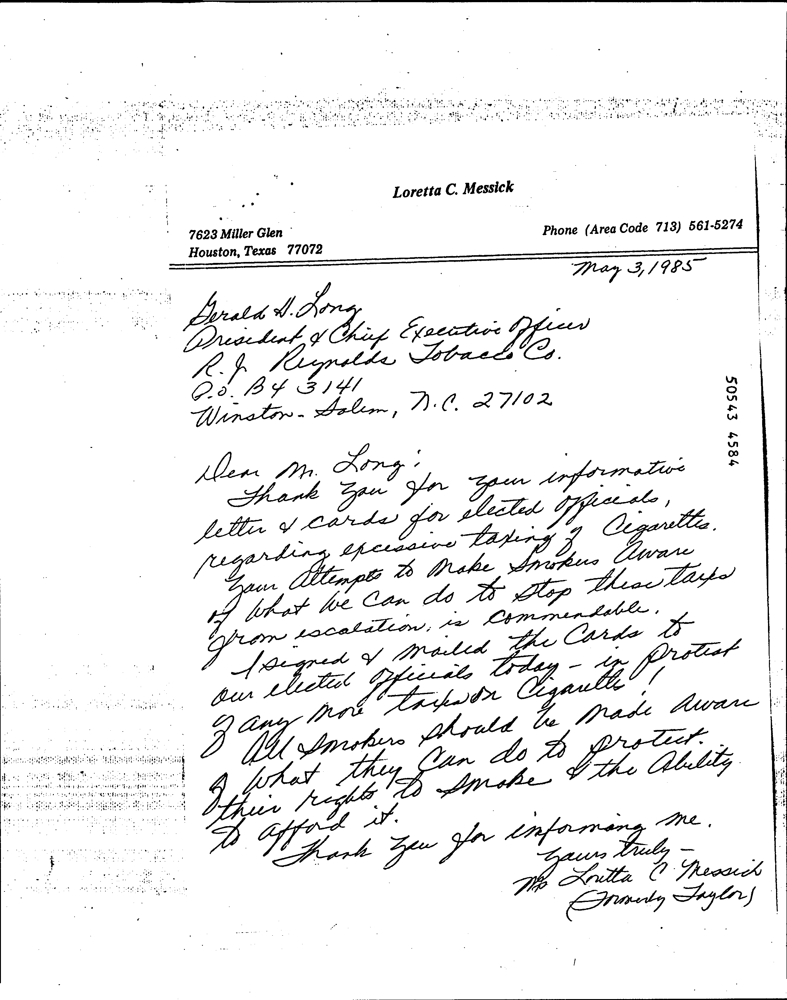 Loretta C. Messick
7623 Miller Glen
Houston, Texas 77072
Phone (Area Code 713) 561-5274
May 3, 1985
Gerald H. Long
President & Chief Executive Officer
R. J. Reynolds Tobacco Co.
P.O. BX 3141
Winston-Salem, N.C. 27102
50543 4584
Dear Mr. Long:
Thank you for your informative
letter & cards for elected officials,
regarding excessive taxing of Cigarettes.
Your Attempts to Make Smokers Aware
of what we can do to stop these taxes
from escalation, is commendable.
I signed & mailed the Cards to
our elected officials today - in protest
of any more taxes on Cigarettes!
All Smokers should be made aware
of what they can do to protect
their rights to smoke & the Ability
to afford it.
Thank you for informing me.
Yours truly -
Ms Loretta C. Messick
(Formerly Taylor)